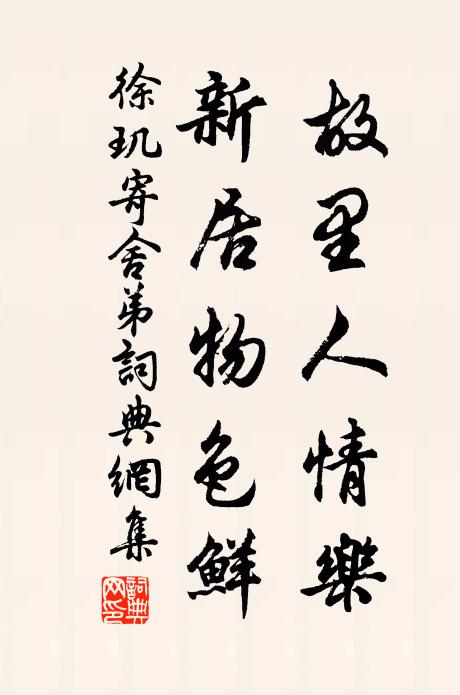 故里人情樂
新居物色鮮
徐玑寄舍弟詞典網集
詞典网印